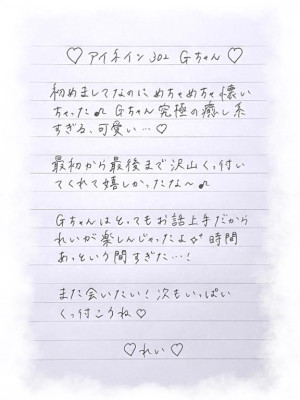 ♡アイネイン302 Gちゃん♡
初めましてなのに、めちゃめちゃ懐い
ちゃった♪ Gちゃん究極の癒し系
すぎる、可愛い…♡
最初から最後まで沢山くっ付い
てくれて嬉しかったな〜♪
Gちゃんはとってもお話上手だから
れいが楽しんじゃったよ✧時間
あっという間すぎた…!
また会いたい!次もいっぱい
くっ付こうね♡
♡れい♡